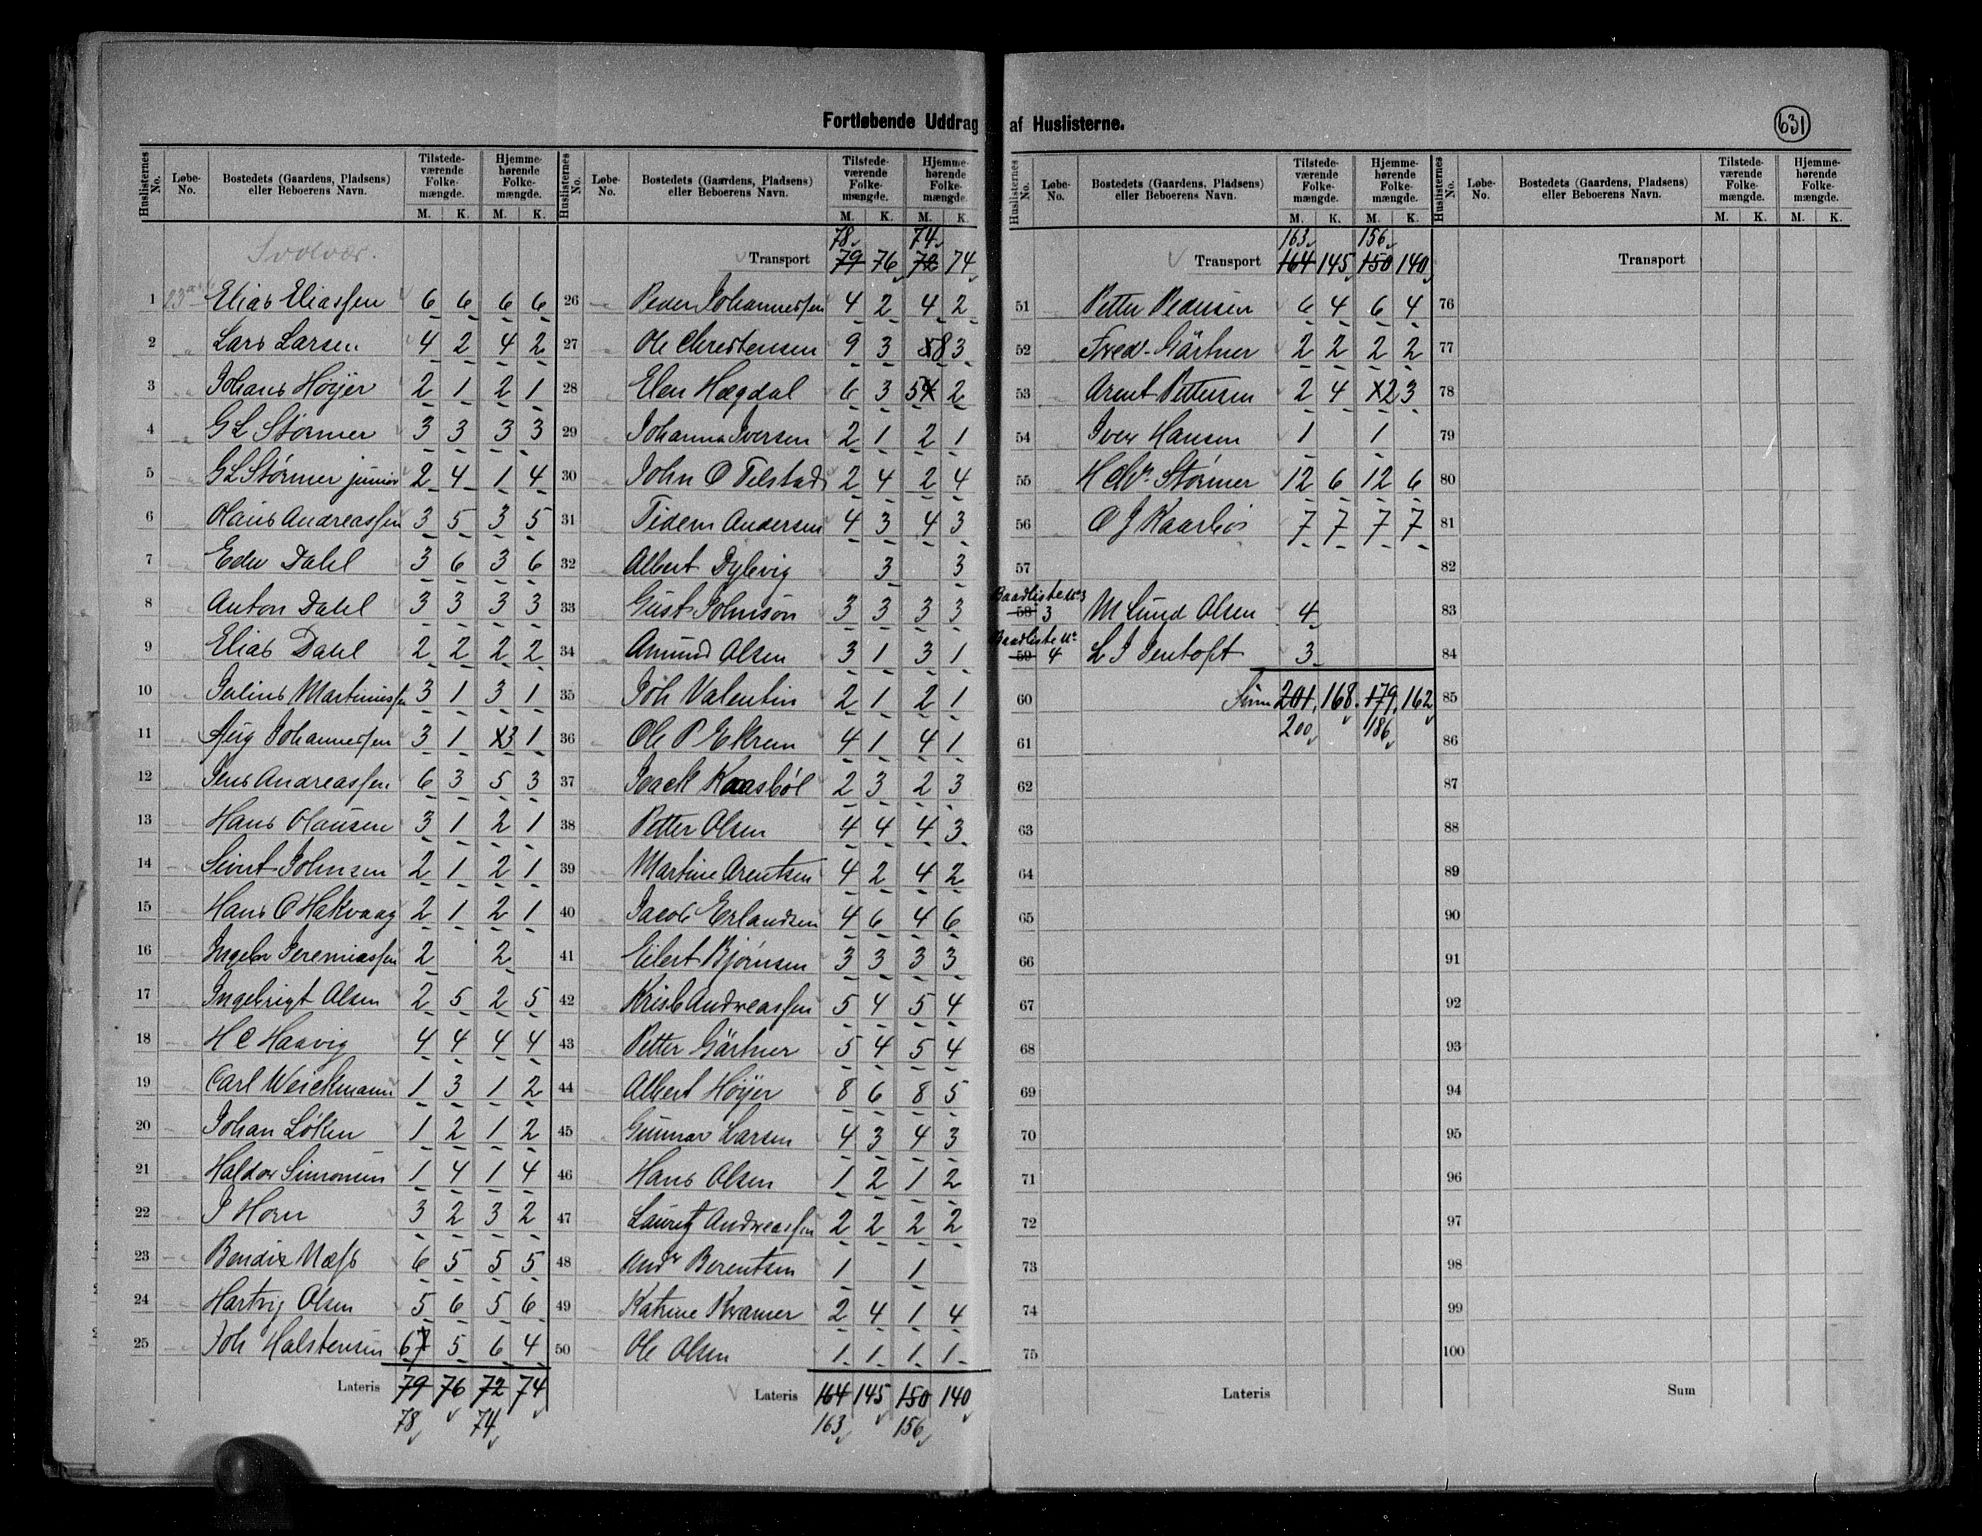 Fortløbende Uddrag af Huslisterne.
631
Huslisternes No. Løbe-No. Bostedets (Gaardens, Pladsens) eller Beboerens Navn. Tilstedeværende Folkemængde. M. K. Hjemmehørende Folkemængde. M. K.
Svolvær.
1 Elias Eliassen 6 6 6 6
2 Lars Larsen 4 2 4 2
3 Johans Høyer 2 1 2 1
4 G L Størmer 3 3 3 3
5 G L Størmer junior 2 4 1 4
6 Olaus Andreassen 3 5 3 5
7 Edev Dahl 3 6 3 6
8 Anton Dahl 3 3 3 3
9 Elias Dahl 2 2 2 2
10 Julius Martinussen 3 1 3 1
11 Aug Johannessen 3 1 3 1
12 Jens Andreassen 6 3 5 3
13 Hans Olausen 3 1 2 1
14 Sivert Johnsen 2 1 2 1
15 Hans C Hakvaag 2 1 2 1
16 Ingebr Jeremiassen 2 2
17 Ingebrigt Olsen 2 5 2 5
18 H C Haavig 4 4 4 4
19 Carl Weickmann 1 3 1 2
20 Johan Løken 1 2 1 2
21 Haldor Simonsen 1 4 1 4
22 J Horn 3 2 3 2
23 Bendix Næss 6 5 5 5
24 Hartvig Olsen 5 6 5 6
25 Joh Halstensen 67 5 6 4
Lateris 79 76 72 74
78 74
Huslisternes No. Løbe-No. Bostedets (Gaardens, Pladsens) eller Beboerens Navn. Tilstedeværende Folkemængde. M. K. Hjemmehørende Folkemængde. M. K.
78 74
Transport 79 76 72 74
26 Peder Johannessen 4 2 4 2
27 Ole Christensen 9 3 8 3
28 Elen Hægdal 6 3 54 2
29 Johanna Iversen 2 1 2 1
30 John O Tilstad 2 4 2 4
31 Tidem Andersen 4 3 4 3
32 Albert Dybvig 3 3
33 Gust Johnson 3 3 3 3
34 Amund Olsen 3 1 3 1
35 Joh Valentin 2 1 2 1
36 Ole P Ekrem 4 1 4 1
37 Isack Kaasbøl 2 3 2 3
38 Petter Olsen 4 4 4 3
39 Martine Arentsen 4 2 4 2
40 Jacob Erlandsen 4 6 4 6
41 Eilert Bjørnsen 3 3 3 3
42 Krist Andreassen 5 4 5 4
43 Petter Gärtner 5 4 5 4
44 Albert Høyer 8 6 8 5
45 Gunnar Larsen 4 3 4 3
46 Hans Olsen 1 2 1 2
47 Lauritz Andreassen 2 2 2 2
48 Andr Berentsen 1 1
49 Katrine Kramer 2 4 1 4
50 Ole Olsen 1 1 1 1
Lateris 164 145 150 140
163 156
Huslisternes No. Løbe-No. Bostedets (Gaardens, Pladsens) eller Beboerens Navn. Tilstedeværende Folkemængde. M. K. Hjemmehørende Folkemængde. M. K.
163 156
Transport 164 145 150 140
51 Petter Pedersen 6 4 6 4
52 Fred. Gärtner 2 2 2 2
53 Arent Pettersen 2 4 2 3
54 Iver Hansen 1 1
55 H Chr Størmer 12 6 12 6
56 O J Kaarbø 7 7 7 7
57
Baadliste No 3
58 3 M Lund Olsen 4
Baadliste No
59 4 L J Jentoft 3
60 Sum 201 168 179 162
61 200 186
62
63
64
65
66
67
68
69
70
71
72
73
74
75
Lateris
Huslisternes No. Løbe-No. Bostedets (Gaardens, Pladsens) eller Beboerens Navn. Tilstedeværende Folkemængde. M. K. Hjemmehørende Folkemængde. M. K.
Transport
76
77
78
79
80
81
82
83
84
85
86
87
88
89
90
91
92
93
94
95
96
97
98
99
100
Sum
631